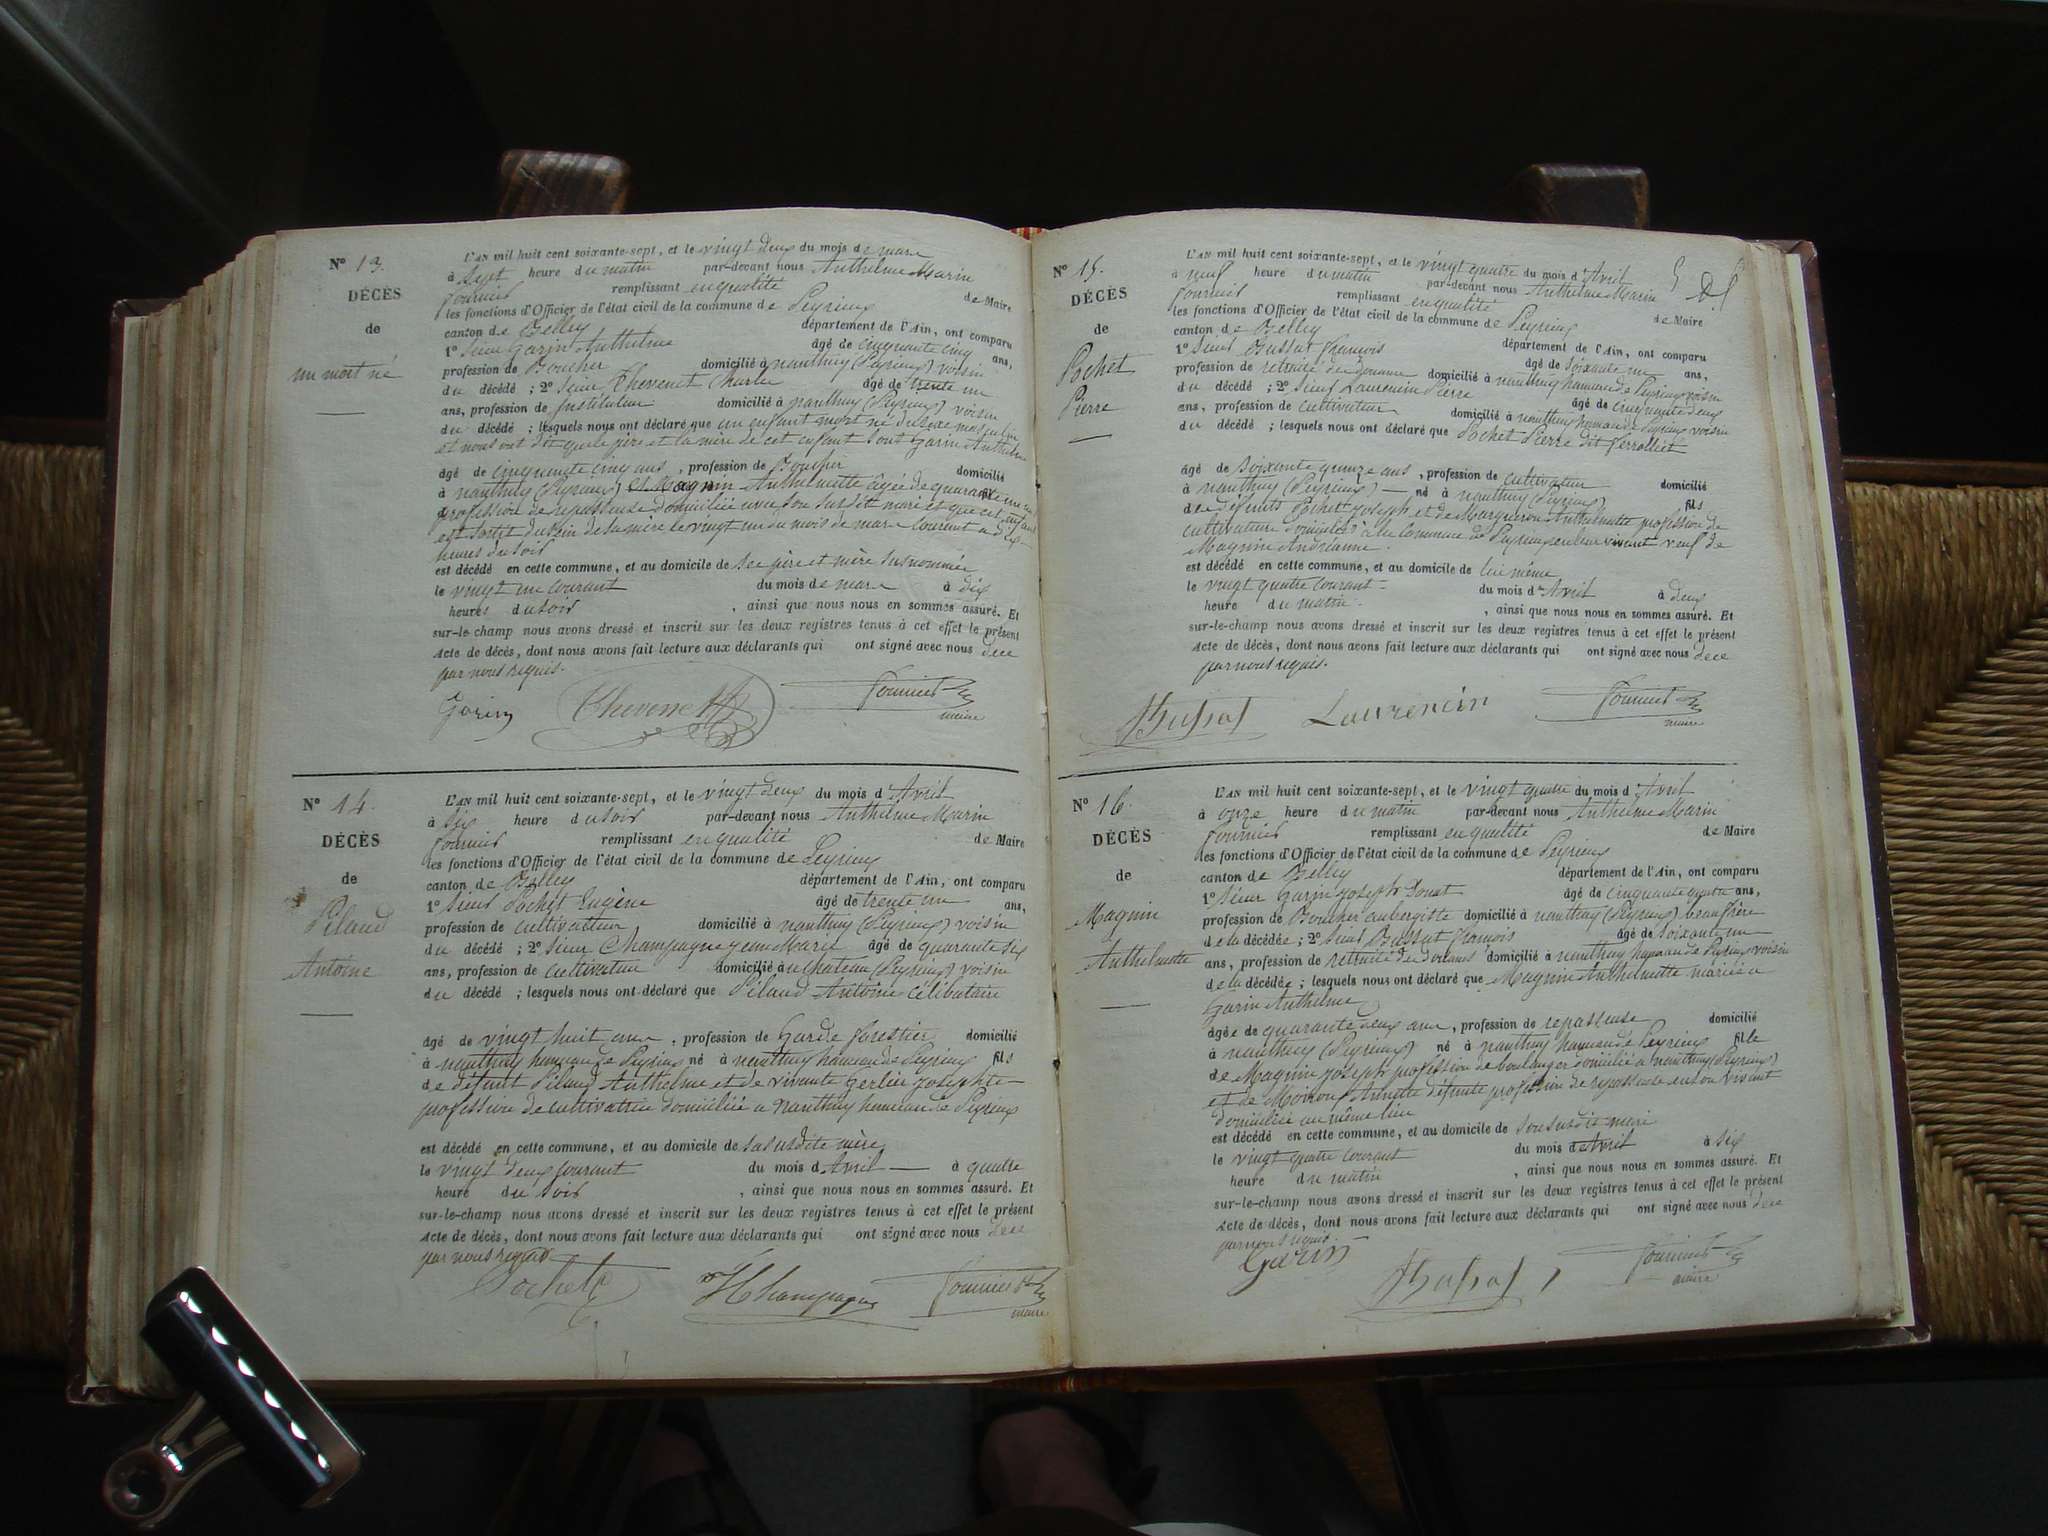 N° 13.
DÉCÈS
de
un mort né
L'AN mil huit cent soixante-sept, et le vingt deux du mois de mars
à Sept heure du matin par-devant nous Anthelme Marin
fournier remplissant en qualité de Maire
les fonctions d'Officier de l'état civil de la commune de Peyrieux
canton de Belley département de l'Ain, ont comparu
1° Sieur Garin Anthelme âgé de cinquante cinq ans,
profession de Boucher domicilié à nanthuy (Peyrieux) voisin
du décédé ; 2° Sieur Thevenet Charles âgé de trente un
ans, profession de Instituteur domicilié à nanthuy (Peyrieux) voisin
du décédé ; lesquels nous ont déclaré que un enfant mort né du sexe masculin
et nous ont dit que le père et la mère de cet enfant sont Garin Anthelme
âgé de cinquante cinq ans, profession de Boucher domicilié
à nanthuy (Peyrieux) et Magnin Anthelmette âgée de quarante
profession de repasseuse domiciliée avec son susdit mari et que cet enfant
est sortit du sein de sa mère le vingt un du mois de mars courant à dix
heures du soir
est décédé en cette commune, et au domicile de ses père et mère susnommés
le vingt un courant du mois de mars à dix
heures du soir, ainsi que nous nous en sommes assuré. Et
sur-le-champ nous avons dressé et inscrit sur les deux registres tenus à cet effet le présent
Acte de décès, dont nous avons fait lecture aux déclarants qui ont signé avec nous de ce
par nous requis.
Garin Thevenet fournier
maire
N° 14.
DÉCÈS
de
Pélaud
Antoine
L'AN mil huit cent soixante-sept, et le vingt deux du mois d'Avril
à six heure du soir par-devant nous Anthelme Marin
fournier remplissant en qualité de Maire
les fonctions d'Officier de l'état civil de la commune de Peyrieux
canton de Belley département de l'Ain, ont comparu
1° Sieur Pochet Eugène âgé de trente un ans,
profession de cultivateur domicilié à nanthuy (Peyrieux) voisin
du décédé ; 2° Sieur Champagne jean Marie âgé de quarante six
ans, profession de cultivateur domicilié à chateau (Peyrieux) voisin
du décédé ; lesquels nous ont déclaré que Pélaud Antoine célibataire
âgé de vingt huit ans, profession de Garde forestier domicilié
à nanthuy hameau de Peyrieux né à nanthuy hameau de Peyrieux fils
de défunt Pélaud Anthelme et de vivante Gerlier josephte
profession de cultivatrice domiciliée à nanthuy hameau de Peyrieux
est décédé en cette commune, et au domicile de sa susdite mère
le vingt deux courant du mois d'Avril à quatre
heure du soir, ainsi que nous nous en sommes assuré. Et
sur-le-champ nous avons dressé et inscrit sur les deux registres tenus à cet effet le présent
Acte de décès, dont nous avons fait lecture aux déclarants qui ont signé avec nous de ce
par nous requis
Pochet Champagne fournier
maire
N° 15.
DÉCÈS
de
Pochet
Pierre
L'AN mil huit cent soixante-sept, et le vingt quatre du mois d'Avril
à neuf heure du matin par-devant nous Anthelme Marin
fournier remplissant en qualité de Maire
les fonctions d'Officier de l'état civil de la commune de Peyrieux
canton de Belley département de l'Ain, ont comparu
1° Sieur Bussat françois âgé de soixante un ans,
profession de retraité des douanes domicilié à nanthuy hameau de Peyrieux voisin
du décédé ; 2° Sieur Laurencin Pierre âgé de cinquante deux
ans, profession de cultivateur domicilié à nanthuy hameau de Peyrieux voisin
du décédé ; lesquels nous ont déclaré que Pochet Pierre dit ferrolliet
âgé de soixante quinze ans, profession de cultivateur domicilié
à nanthuy (Peyrieux) né à nanthuy (Peyrieux) fils
de défunts Pochet joseph et de Margueron Anthelmette profession de
cultivateurs domiciliés à la commune de Peyrieux vivant veuf de
Magnin Andréanne.
est décédé en cette commune, et au domicile de lui même
le vingt quatre courant du mois d'Avril à deux
heure du matin, ainsi que nous nous en sommes assuré. Et
sur-le-champ nous avons dressé et inscrit sur les deux registres tenus à cet effet le présent
Acte de décès, dont nous avons fait lecture aux déclarants qui ont signé avec nous de ce
par nous requis.
Bussat Laurencin fournier
maire
N° 16.
DÉCÈS
de
Magnin
Anthelmette
L'AN mil huit cent soixante-sept, et le vingt quatre du mois d'Avril
à onze heure du matin par-devant nous Anthelme Marin
fournier remplissant en qualité de Maire
les fonctions d'Officier de l'état civil de la commune de Peyrieux
canton de Belley département de l'Ain, ont comparu
1° Sieur Garin joseph Donat âgé de cinquante quatre ans,
profession de Boucher aubergiste domicilié à nanthuy (Peyrieux) beau frère
de la décédée ; 2° Sieur Bussat françois âgé de soixante un
ans, profession de retraité des douanes domicilié à nanthuy hameau de Peyrieux voisin
de la décédée ; lesquels nous ont déclaré que Magnin Anthelmette mariée à
Garin Anthelme
âgée de quarante deux ans, profession de repasseuse domicilié
à nanthuy (Peyrieux) né à nanthuy hameau de Peyrieux fille
de Magnin joseph profession de boulanger domicilié à nanthuy (Peyrieux)
et de Annette défunte profession de repasseuse en son vivant
domiciliée au même lieu
est décédé en cette commune, et au domicile de son susdit mari
le vingt quatre courant du mois d'Avril à six
heure du matin, ainsi que nous nous en sommes assuré. Et
sur-le-champ nous avons dressé et inscrit sur les deux registres tenus à cet effet le présent
Acte de décès, dont nous avons fait lecture aux déclarants qui ont signé avec nous de ce
par nous requis
Garin Bussat fournier
maire